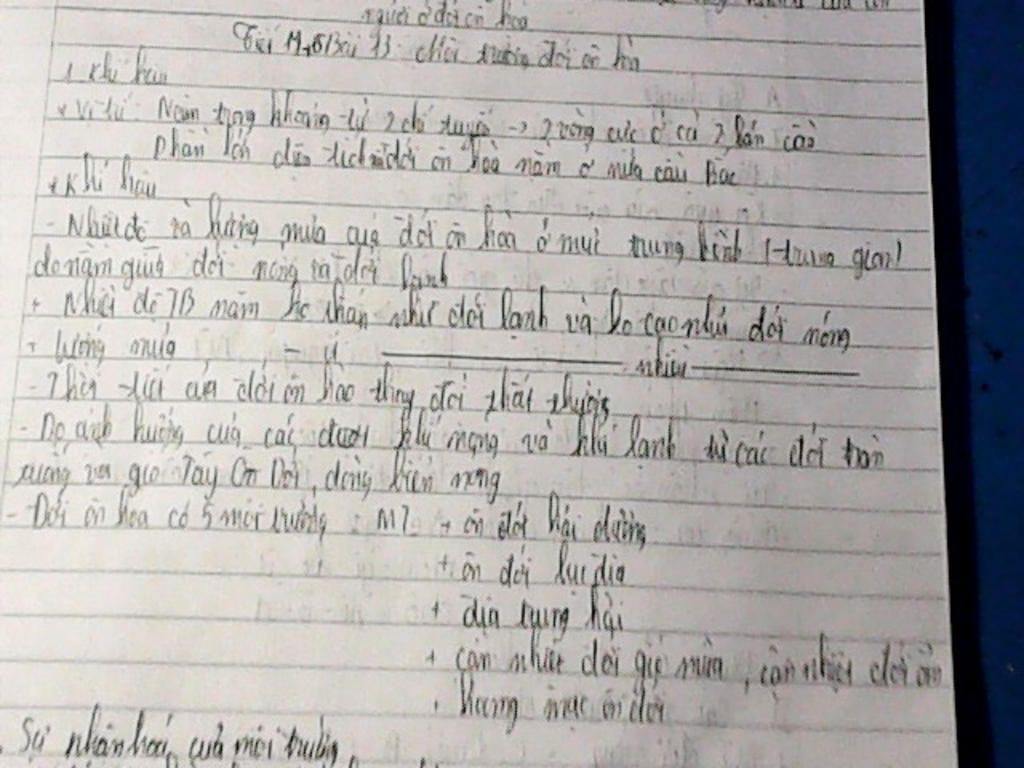 người ở đới ôn hòa
Bài 13: Môi trường đới ôn hòa
1. Khí hậu
* Vị trí: Nằm trong khoảng từ 2 chí tuyến → 2 vòng cực ở cả 2 bán cầu
Phần lớn diện tích đới ôn hoà nằm ở nửa cầu Bắc
* Khí hậu
- Nhiệt độ và lượng mưa của đới ôn hoà ở mức trung bình (trung gian)
do nằm giữa đới nóng và đới lạnh
+ Nhiệt độ TB năm như đới lạnh và cao như đới nóng
+ lượng mưa nhiều
- Thời tiết của đới ôn hào thay đổi thất thường
- Do ảnh hưởng của các khí nóng và khí lạnh từ các đới tràn
xuống và gió Tây Ôn Đới, dòng biển nóng
- Đới ôn hoà có 5 môi trường: MT + ôn đới hải dương
+ ôn đới lục địa
+ địa trung hải
+ cận nhiệt đới gió mùa, cận nhiệt đới ẩm
+ hoang mạc ôn đới
Sự phân hoá của môi trường